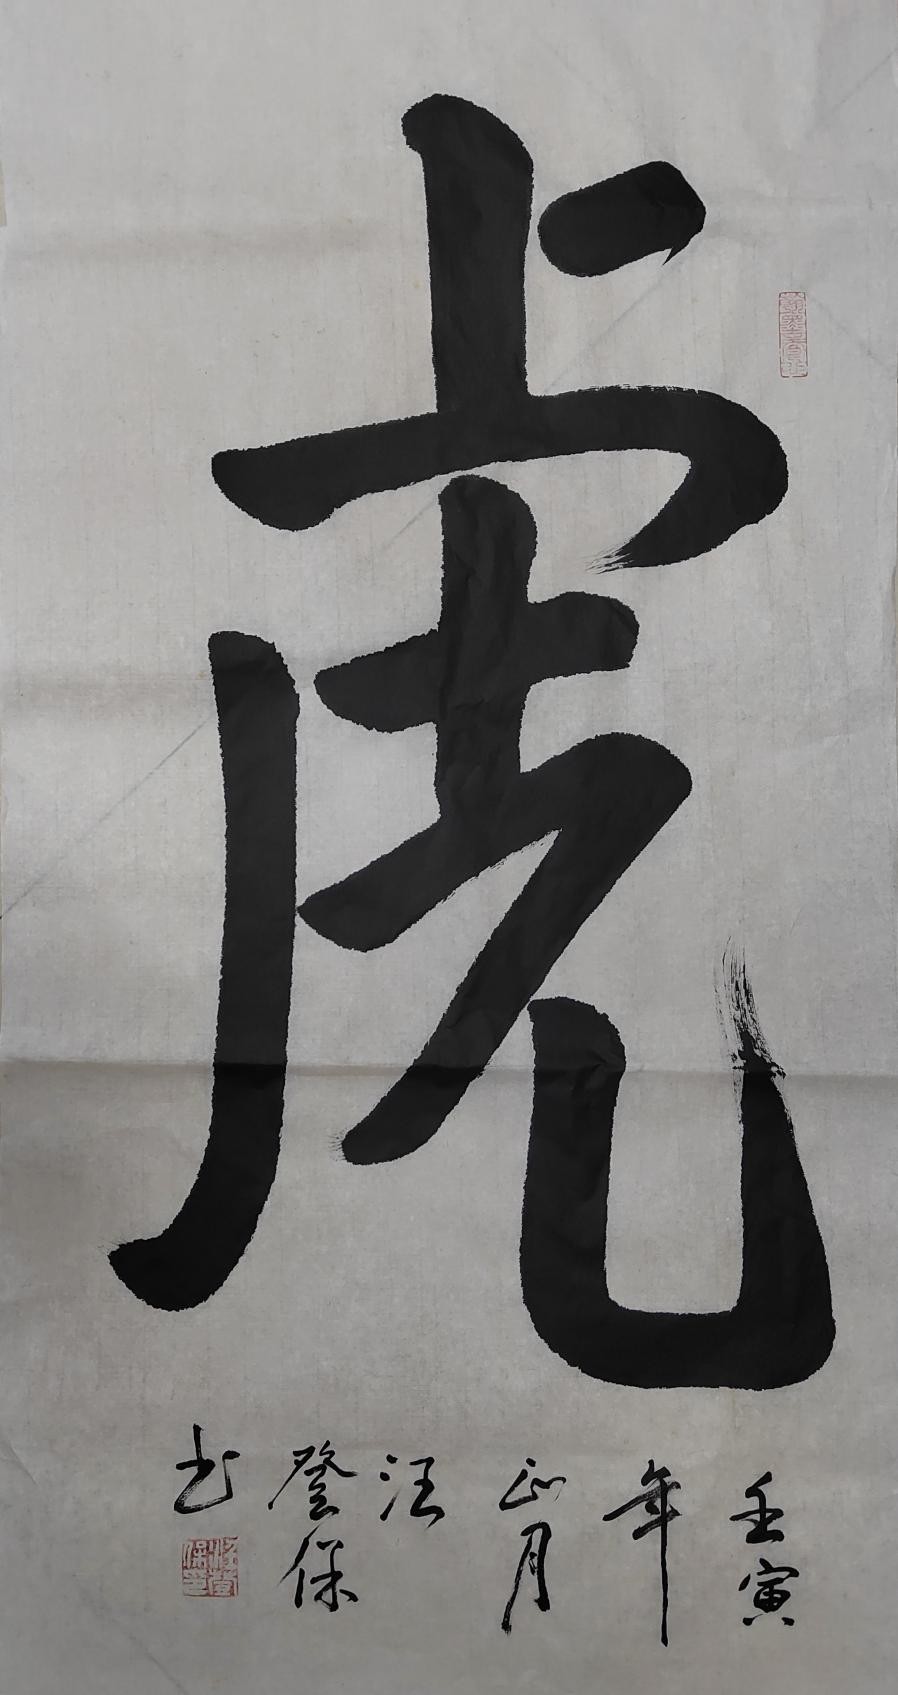 虎
壬寅
年
正月
汪
登保
书